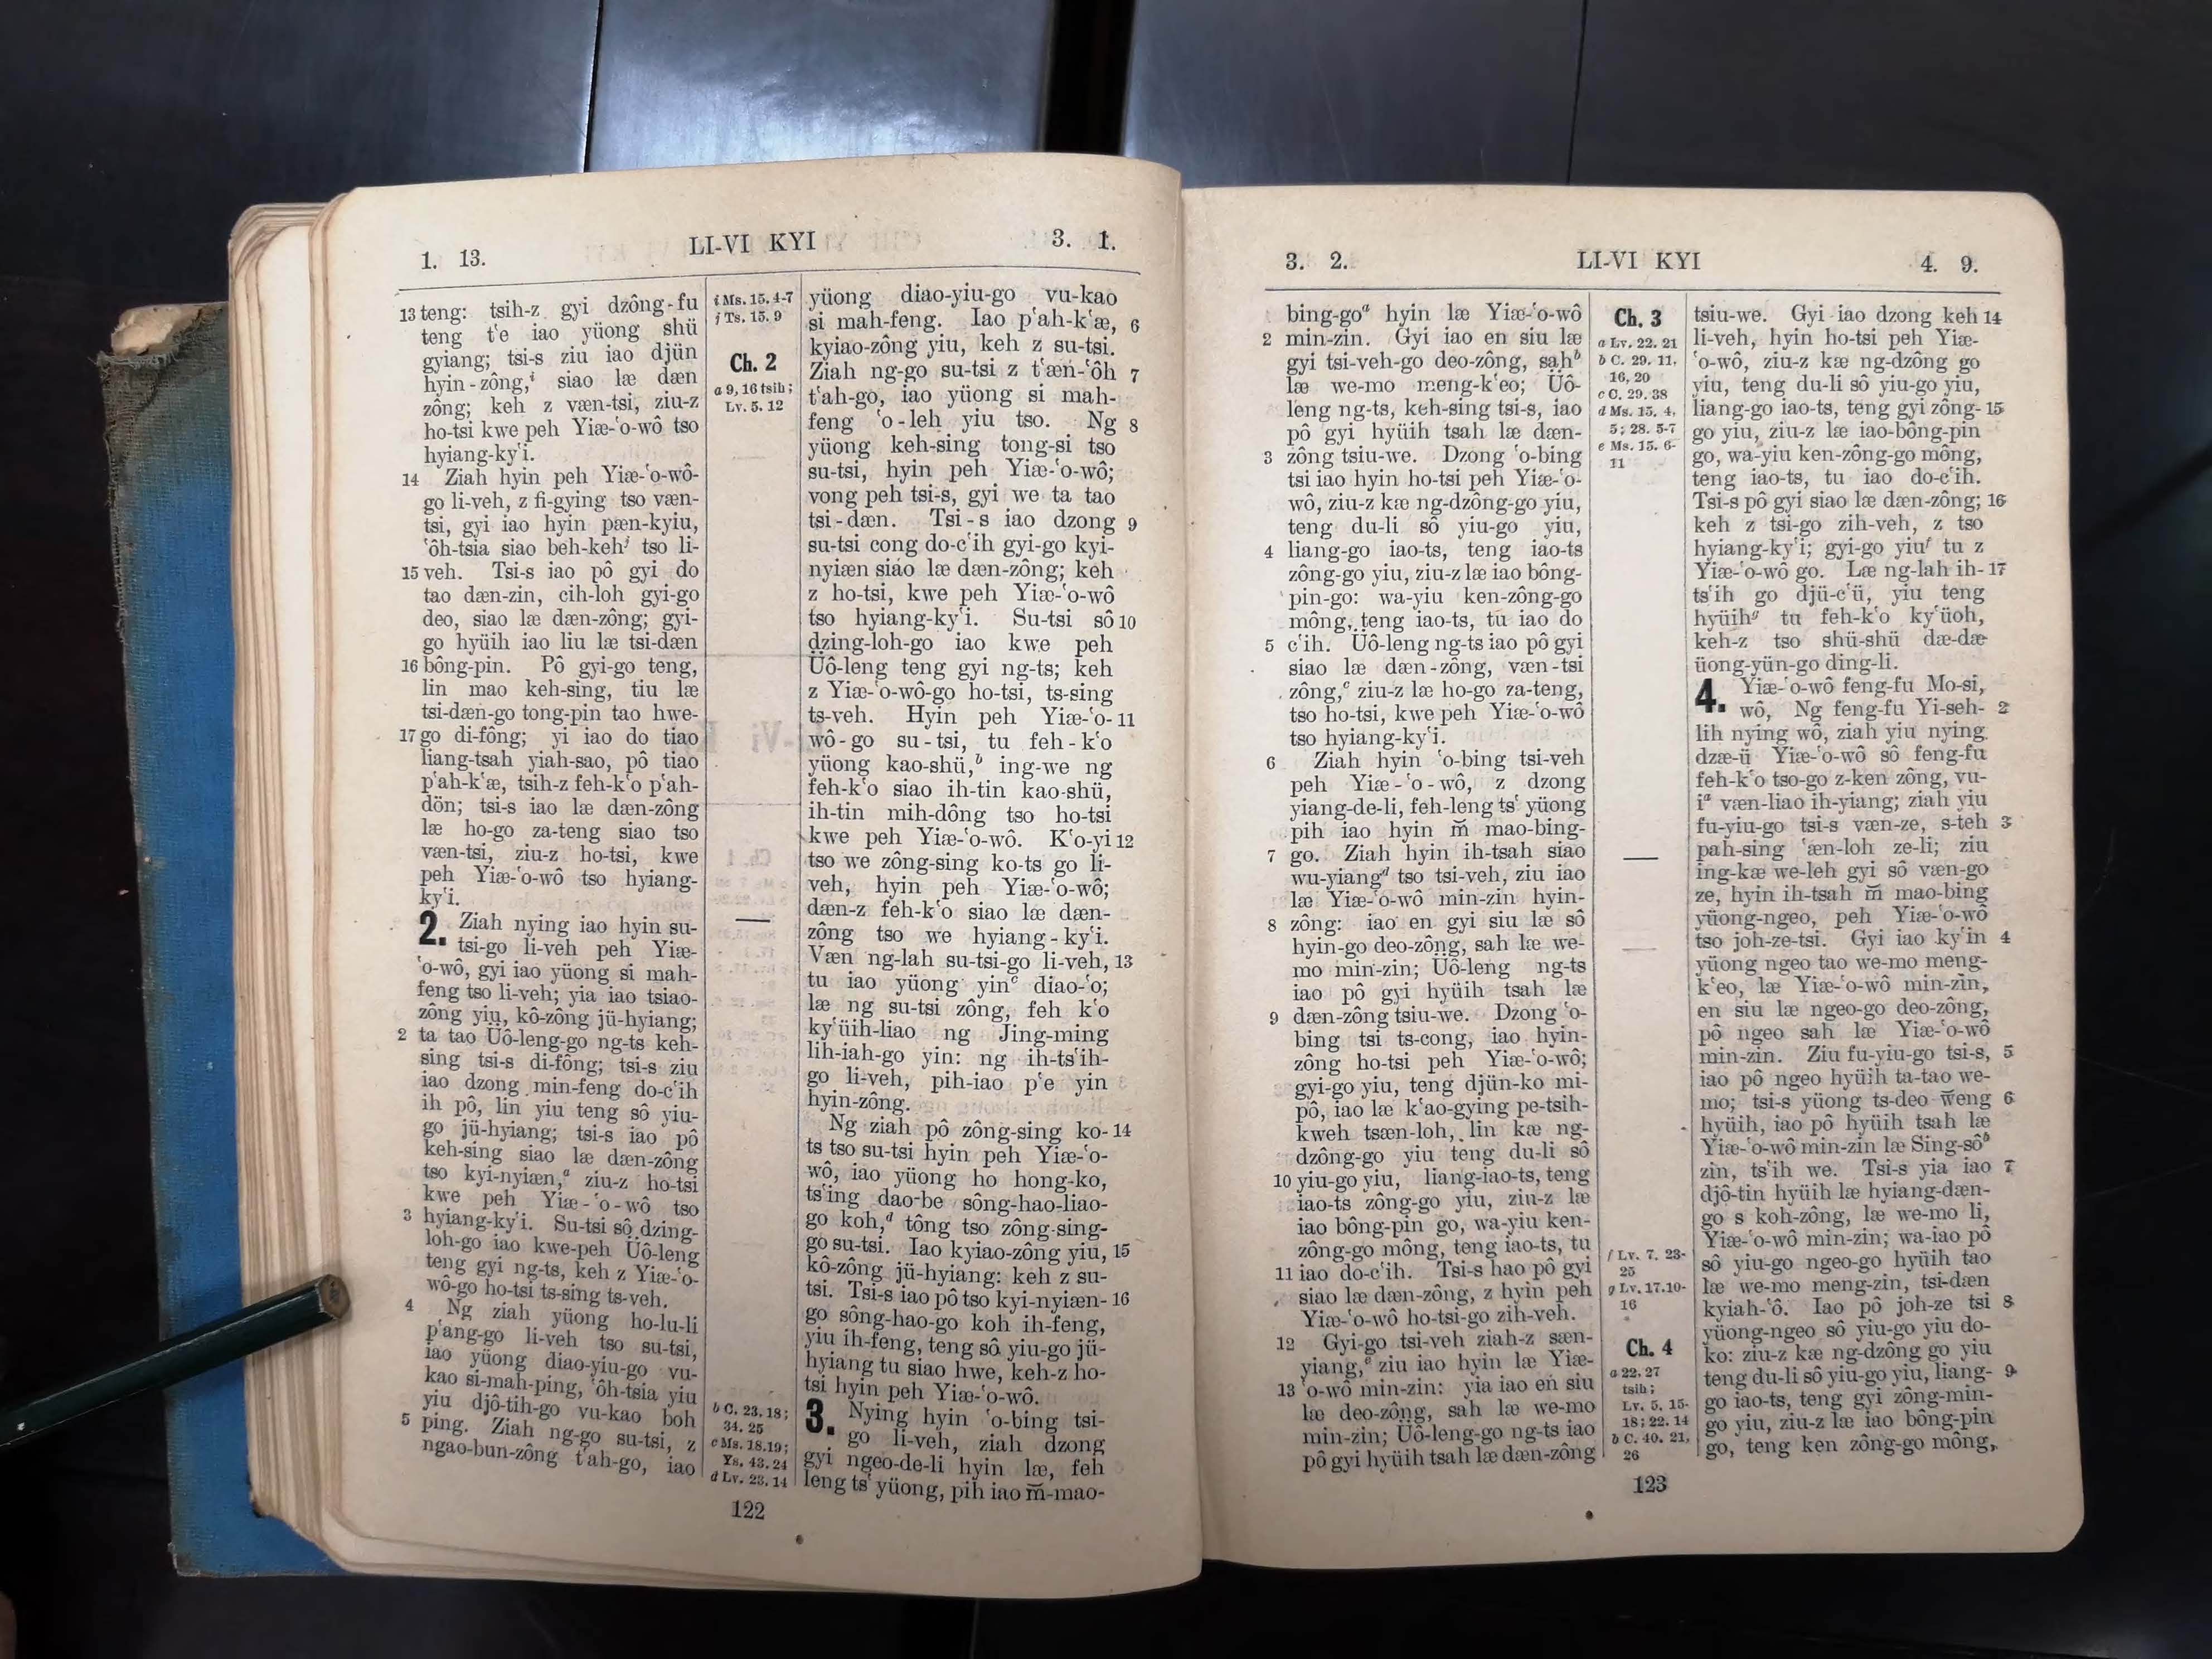 1. 13.
LI-VI KYI
3. 1.
13 teng: tsih-z gyi dzông-fu
teng t‘e iao yüong shü
gyiang; tsi-s ziu iao djün
hyin-zông,ⁱ siao læ dæn
zông; keh z væn-tsi, ziu-z
ho-tsi kwe peh Yiæ-‘o-wô tso
hyiang-ky‘i.
14 Ziah hyin peh Yiæ-‘o-wô-
go li-veh, z fi-gying tso væn-
tsi, gyi iao hyin pæn-kyiu,
‘ôh-tsia siao beh-kehʲ tso li-
15 veh. Tsi-s iao pô gyi do
tao dæn-zin, cih-loh gyi-go
deo, siao læ dæn-zông; gyi-
go hyüih iao liu læ tsi-dæn
16 bông-pin. Pô gyi-go teng,
lin mao keh-sing, tiu læ
tsi-dæn-go tong-pin tao hwe-
17 go di-fông; yi iao do tiao
liang-tsah yiah-sao, pô tiao
p‘ah-k‘æ, tsih-z feh-k‘o p‘ah-
dön; tsi-s iao læ dæn-zông
læ ho-go za-teng siao tso
væn-tsi, ziu-z ho-tsi, kwe
peh Yiæ-‘o-wô tso hyiang-
ky‘i.
2. Ziah nying iao hyin su-
tsi-go li-veh peh Yiæ-
‘o-wô, gyi iao yüong si mah-
feng tso li-veh; yia iao tsiao-
zông yiu, kô-zông jü-hyiang;
2 ta tao Üô-leng-go ng-ts keh-
sing tsi-s di-fông; tsi-s ziu
iao dzong min-feng do-c‘ih
ih pô, lin yiu teng sô yiu-
go jü-hyiang; tsi-s iao pô
keh-sing siao læ dæn-zông
tso kyi-nyiæn,ᵃ ziu-z ho-tsi
kwe peh Yiæ-‘o-wô tso
3 hyiang-ky‘i. Su-tsi sô dzing-
loh-go iao kwe-peh Üô-leng
teng gyi ng-ts, keh z Yiæ-‘o-
wô-go ho-tsi ts-sing ts-veh.
4 Ng ziah yüong ho-lu-li
p‘ang-go li-veh tso su-tsi,
iao yüong diao-yiu-go vu-
kao si-mah-ping, ‘ôh-tsia yiu
yiu djô-tih-go vu-kao boh
5 ping. Ziah ng-go su-tsi, z
ngao-bun-zông t‘ah-go, iao
i Ms. 15. 4-7
j Ts. 15. 9
Ch. 2
a 9, 16 tsih;
Lv. 5. 12
b C. 23. 18;
34. 25
c Ms. 18.19;
Ys. 43. 24
d Lv. 23. 14
yüong diao-yiu-go vu-kao
si mah-feng. Iao p‘ah-k‘æ, 6
kyiao-zông yiu, keh z su-tsi.
Ziah ng-go su-tsi z t‘æn-‘ôh 7
t‘ah-go, iao yüong si mah-
feng ‘o-leh yiu tso. Ng 8
yüong keh-sing tong-si tso
su-tsi, hyin peh Yiæ-‘o-wô;
vong peh tsi-s, gyi we ta tao
tsi-dæn. Tsi-s iao dzong 9
su-tsi cong do-c‘ih gyi-go kyi-
nyiæn siao læ dæn-zông; keh
z ho-tsi, kwe peh Yiæ-‘o-wô
tso hyiang-ky‘i. Su-tsi sô 10
dzing-loh-go iao kwe peh
Üô-leng teng gyi ng-ts; keh
z Yiæ-‘o-wô-go ho-tsi, ts-sing
ts-veh. Hyin peh Yiæ-‘o- 11
wô-go su-tsi, tu feh-k‘o
yüong kao-shü,ᵇ ing-we ng
feh-k‘o siao ih-tin kao-shü,
ih-tin mih-dông tso ho-tsi
kwe peh Yiæ-‘o-wô. K‘o-yi 12
tso we zông-sing ko-ts go li-
veh, hyin peh Yiæ-‘o-wô;
dæn-z feh-k‘o siao læ dæn-
zông tso we hyiang-ky‘i.
Væn ng-lah su-tsi-go li-veh, 13
tu iao yüong yinᶜ diao-‘o;
læ ng su-tsi zông, feh k‘o
ky‘üih-liao ng Jing-ming
lih-iah-go yin: ng ih-ts‘ih-
go li-veh, pih-iao p‘e yin
hyin-zông.
Ng ziah pô zông-sing ko- 14
ts tso su-tsi hyin peh Yiæ-‘o-
wô, iao yüong ho hong-ko,
ts‘ing dao-be sông-hao-liao-
go koh,ᵈ tông tso zông-sing-
go su-tsi. Iao kyiao-zông yiu, 15
kô-zông jü-hyiang: keh z su-
tsi. Tsi-s iao pô tso kyi-nyiæn- 16
go sông-hao-go koh ih-feng,
yiu ih-feng, teng sô yiu-go jü-
hyiang tu siao hwe, keh-z ho-
tsi hyin peh Yiæ-‘o-wô.
3. Nying hyin ‘o-bing tsi-
go li-veh, ziah dzong
gyi ngeo-de-li hyin læ, feh
leng ts‘ yüong, pih iao m̆-mao-
122
3. 2.
LI-VI KYI
4. 9.
bing-goᵃ hyin læ Yiæ-‘o-wô
2 min-zin. Gyi iao en siu læ
gyi tsi-veh-go deo-zông, sahᵇ
læ we-mo meng-k‘eo; Üô-
leng ng-ts, keh-sing tsi-s, iao
pô gyi hyüih tsah læ dæn-
3 zông tsiu-we. Dzong ‘o-bing
tsi iao hyin ho-tsi peh Yiæ-‘o-
wô, ziu-z kæ ng-dzông-go yiu,
teng du-li sô yiu-go yiu,
4 liang-go iao-ts, teng iao-ts
zông-go yiu, ziu-z læ iao bông-
pin-go: wa-yiu ken-zông-go
mông, teng iao-ts, tu iao do
5 c‘ih. Üô-leng ng-ts iao pô gyi
siao læ dæn-zông, væn-tsi
zông,ᶜ ziu-z læ ho-go za-teng,
tso ho-tsi, kwe peh Yiæ-‘o-wô
tso hyiang-ky‘i.
6 Ziah hyin ‘o-bing tsi-veh
peh Yiæ-‘o-wô, z dzong
yiang-de-li, feh-leng ts‘ yüong
pih iao hyin m̆ mao-bing-
7 go. Ziah hyin ih-tsah siao
wu-yiangᵈ tso tsi-veh, ziu iao
læ Yiæ-‘o-wô min-zin hyin-
8 zông: iao en gyi siu læ sô
hyin-go deo-zông, sah læ we-
mo min-zin; Üô-leng ng-ts
iao pô gyi hyüih tsah læ
9 dæn-zông tsiu-we. Dzong ‘o-
bing tsi ts-cong, iao hyin-
zông ho-tsi peh Yiæ-‘o-wô;
gyi-go yiu, teng djün-ko mi-
pô, iao læ k‘ao-gying pe-tsih-
kweh tsæn-loh, lin kæ ng-
dzông-go yiu teng du-li sô
10 yiu-go yiu, liang-iao-ts, teng
iao-ts zông-go yiu, ziu-z læ
iao bông-pin go, wa-yiu ken-
zông-go mông, teng iao-ts, tu
11 iao do-c‘ih. Tsi-s hao pô gyi
siao læ dæn-zông, z hyin peh
Yiæ-‘o-wô ho-tsi-go zih-veh.
12 Gyi-go tsi-veh ziah-z sæn-
yiang,ᵉ ziu iao hyin læ Yiæ-
13 ‘o-wô min-zin: yia iao en siu
læ deo-zông, sah læ we-mo
min-zin; Üô-leng-go ng-ts iao
pô gyi hyüih tsah læ dæn-zông
Ch. 3
a Lv. 22. 21
b C. 29. 11,
16, 20
c C. 29. 38
d Ms. 15. 4,
5; 28. 5-7
e Ms. 15. 6-
11
f Lv. 7. 23-
25
g Lv. 17.10-
16
Ch. 4
a 22, 27
tsih;
Lv. 5. 15-
18; 22. 14
b C. 40. 21,
26
tsiu-we. Gyi iao dzong keh 14
li-veh, hyin ho-tsi peh Yiæ-
‘o-wô, ziu-z kæ ng-dzông go
yiu, teng du-li sô yiu-go yiu,
liang-go iao-ts, teng gyi zông- 15
go yiu, ziu-z læ iao-bông-pin
go, wa-yiu ken-zông-go mông,
teng iao-ts, tu iao do-c‘ih.
Tsi-s pô gyi siao læ dæn-zông; 16
keh z tsi-go zih-veh, z tso
hyiang-ky‘i; gyi-go yiuᶠ tu z
Yiæ-‘o-wô go. Læ ng-lah ih- 17
ts‘ih go djü-c‘ü, yiu teng
hyüihᵍ tu feh-k‘o ky‘üoh,
keh-z tso shü-shü dæ-dæ
üong-yün-go ding-li.
4. Yiæ-‘o-wô feng-fu Mo-si,
wô, Ng feng-fu Yi-seh- 2
lih nying wô, ziah yiu nying
dzæ-ü Yiæ-‘o-wô sô feng-fu
feh-k‘o tso-go z-ken zông, vu-
iᵃ væn-liao ih-yiang; ziah yiu
fu-yiu-go tsi-s væn-ze, s-teh 3
pah-sing ‘æn-loh ze-li; ziu
ing-kæ we-leh gyi sô væn-go
ze, hyin ih-tsah m̆ mao-bing
yüong-ngeo, peh Yiæ-‘o-wô
tso joh-ze-tsi. Gyi iao ky‘in 4
yüong ngeo tao we-mo meng-
k‘eo, læ Yiæ-‘o-wô min-zin,
en siu læ ngeo-go deo-zông,
pô ngeo sah læ Yiæ-‘o-wô
min-zin. Ziu fu-yiu-go tsi-s, 5
iao pô ngeo hyüih ta-tao we-
mo; tsi-s yüong ts-deo w̆eng 6
hyüih, iao pô hyüih tsah læ
Yiæ-‘o-wô min-zin læ Sing-sôᵇ
zin, ts‘ih we. Tsi-s yia iao 7
djô-tin hyüih læ hyiang-dæn-
go s koh-zông, læ we-mo li,
Yiæ-‘o-wô min-zin; wa-iao pô
sô yiu-go ngeo-go hyüih tao
læ we-mo meng-zin, tsi-dæn
kyiah-‘ô. Iao pô joh-ze tsi 8
yüong-ngeo sô yiu-go yiu do-
ko: ziu-z kæ ng-dzông go yiu
teng du-li sô yiu-go yiu, liang- 9
go iao-ts, teng gyi zông-min-
go yiu, ziu-z læ iao bông-pin
go, teng ken zông-go mông,
123